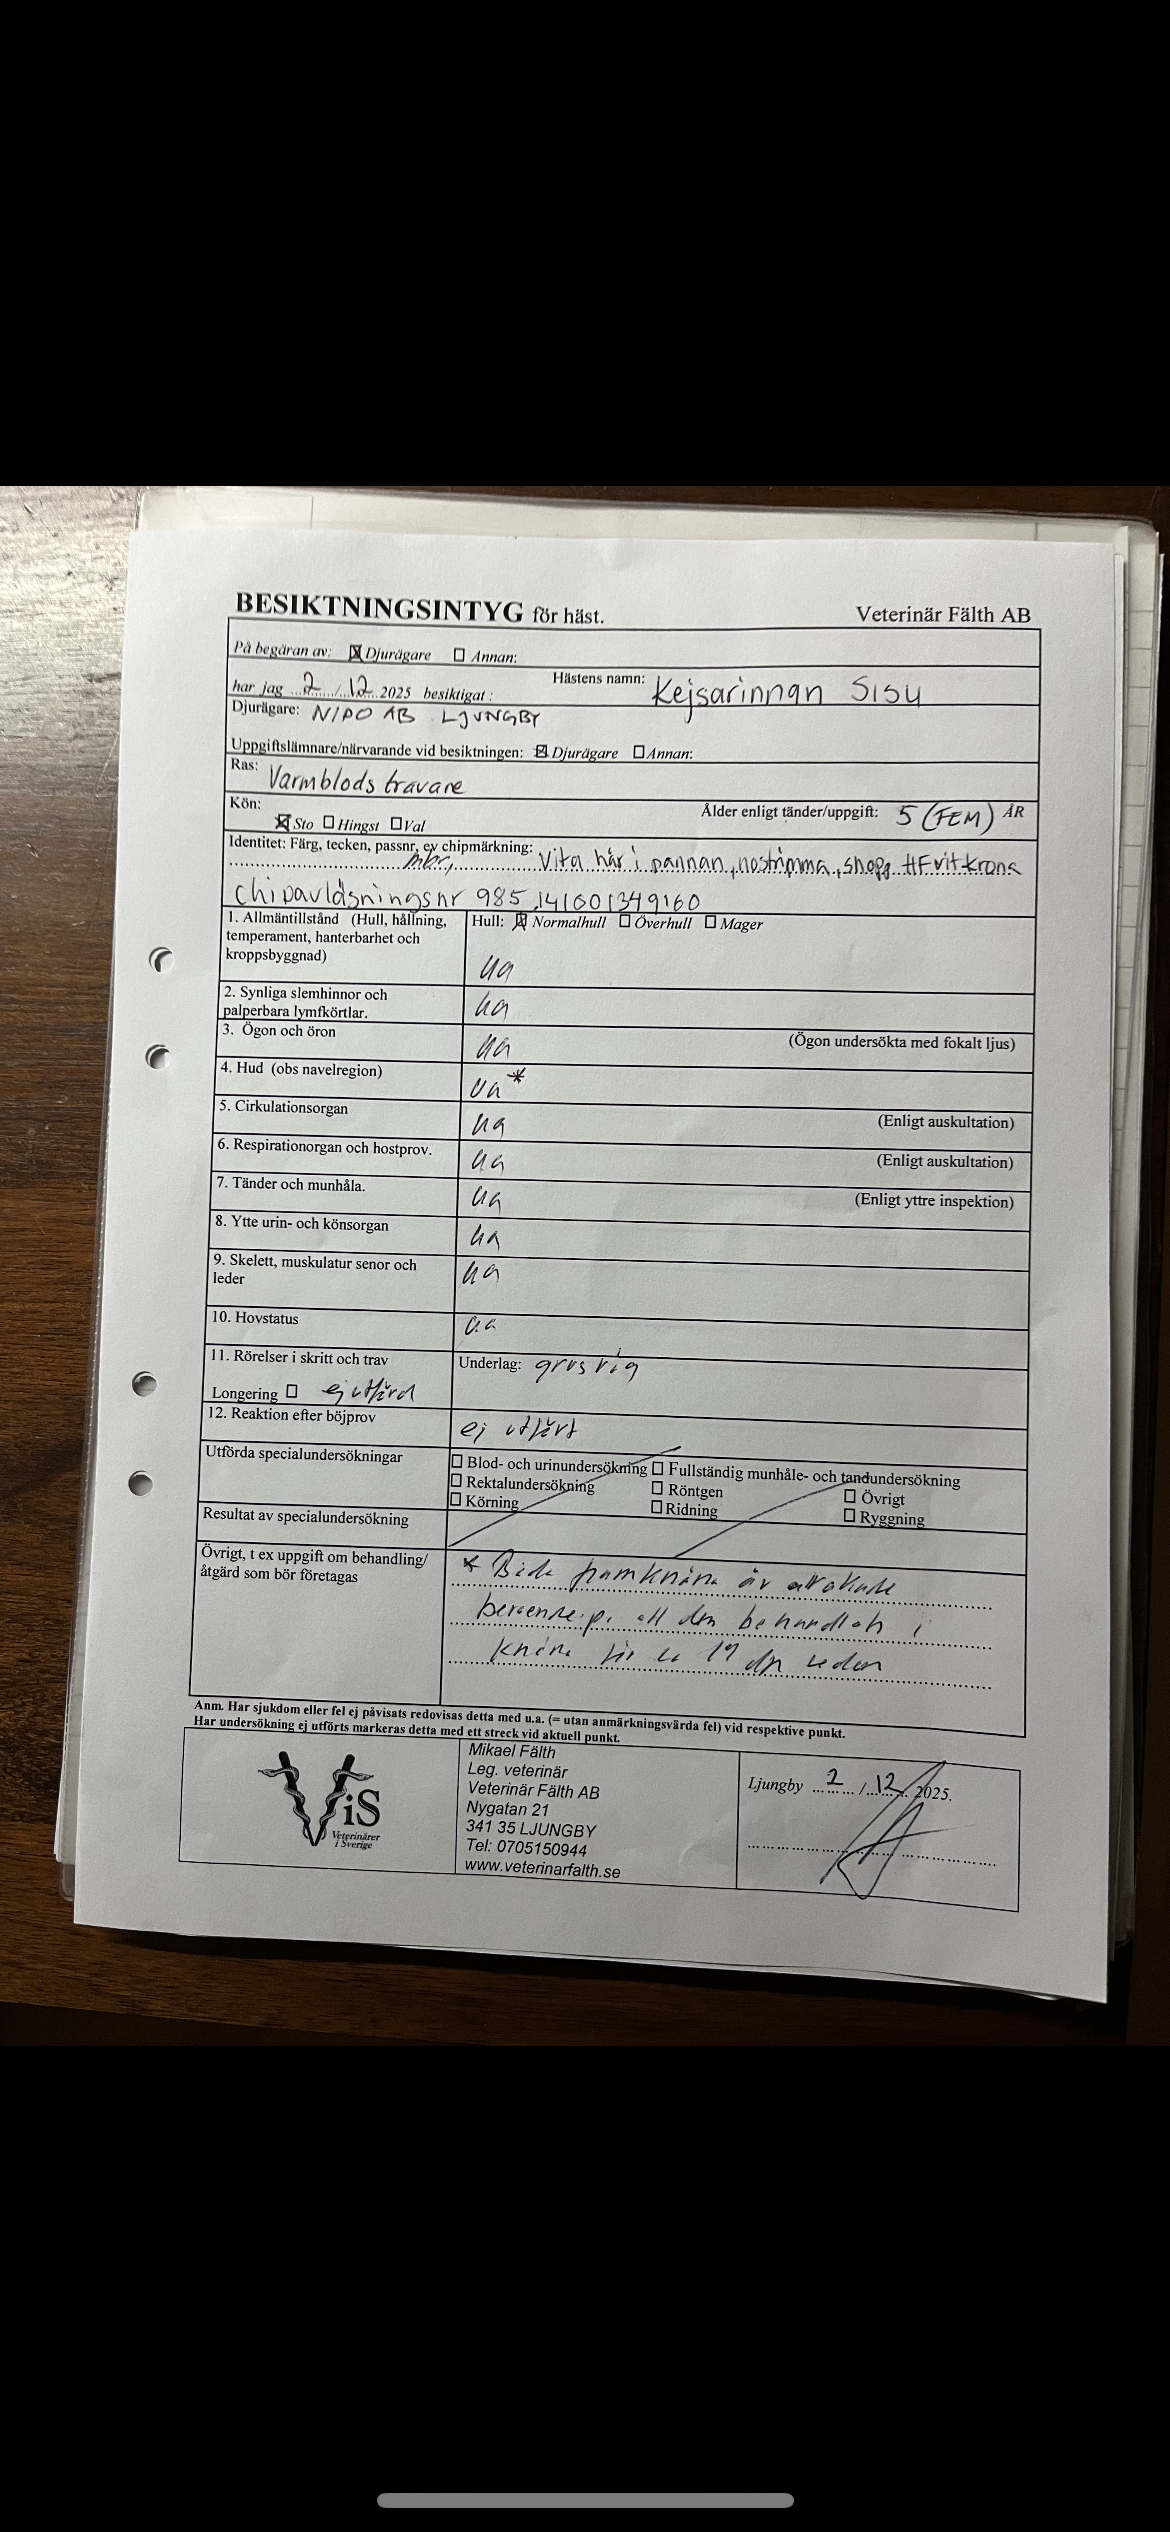 BESIKTNINGSINTYG för häst. Veterinär Fälth AB
På begäran av: Djurägare Annan:
har jag 2/12 2025 besiktigat: Hästens namn: Kejsarinnan Sisu
Djurägare: NIPO AB LJUNGBY
Uppgiftslämnare/närvarande vid besiktningen: Djurägare Annan:
Ras: Varmblods travare
Kön: Ålder enligt tänder/uppgift: 5 (FEM) ÅR
Sto Hingst Val
Identitet: Färg, tecken, passnr, ev chipmärkning:
mbr, Vita hår i pannan, nostrimma, snopp HF vit krona
Chipavläsningsnr 985 141601349160
1. Allmäntillstånd (Hull, hållning, Hull: Normalhull Överhull Mager
temperament, hanterbarhet och
kroppsbyggnad) ua
2. Synliga slemhinnor och ua
palperbara lymfkörtlar.
3. Ögon och öron ua (Ögon undersökta med fokalt ljus)
4. Hud (obs navelregion) ua *
5. Cirkulationsorgan ua (Enligt auskultation)
6. Respirationorgan och hostprov. ua (Enligt auskultation)
7. Tänder och munhåla. ua (Enligt yttre inspektion)
8. Ytte urin- och könsorgan ua
9. Skelett, muskulatur senor och ua
leder
10. Hovstatus ua
11. Rörelser i skritt och trav Underlag: grusväg
Longering ej utförd
12. Reaktion efter böjprov ej utfört
Utförda specialundersökningar Blod- och urinundersökning Fullständig munhåle- och tandundersökning
Rektalundersökning Röntgen Övrigt
Körning Ridning Ryggning
Resultat av specialundersökning
Övrigt, t ex uppgift om behandling/ * Båda framknäna är
åtgärd som bör företagas
beroende på att den behandlats i
knäna för ca dgr sedan
Anm. Har sjukdom eller fel ej påvisats redovisas detta med u.a. (= utan anmärkningsvärda fel) vid respektive punkt.
Har undersökning ej utförts markeras detta med ett streck vid aktuell punkt.
ViS
Veterinärer
i Sverige
Mikael Fälth
Leg. veterinär
Veterinär Fälth AB
Nygatan 21
341 35 LJUNGBY
Tel: 0705150944
www.veterinarfalth.se
Ljungby 2/12 2025.